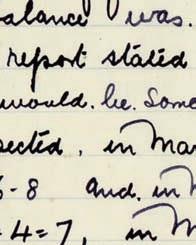 balance was.
report stated
would. be. Som
ected, in Mar
-8 and. in
=4=7, in M